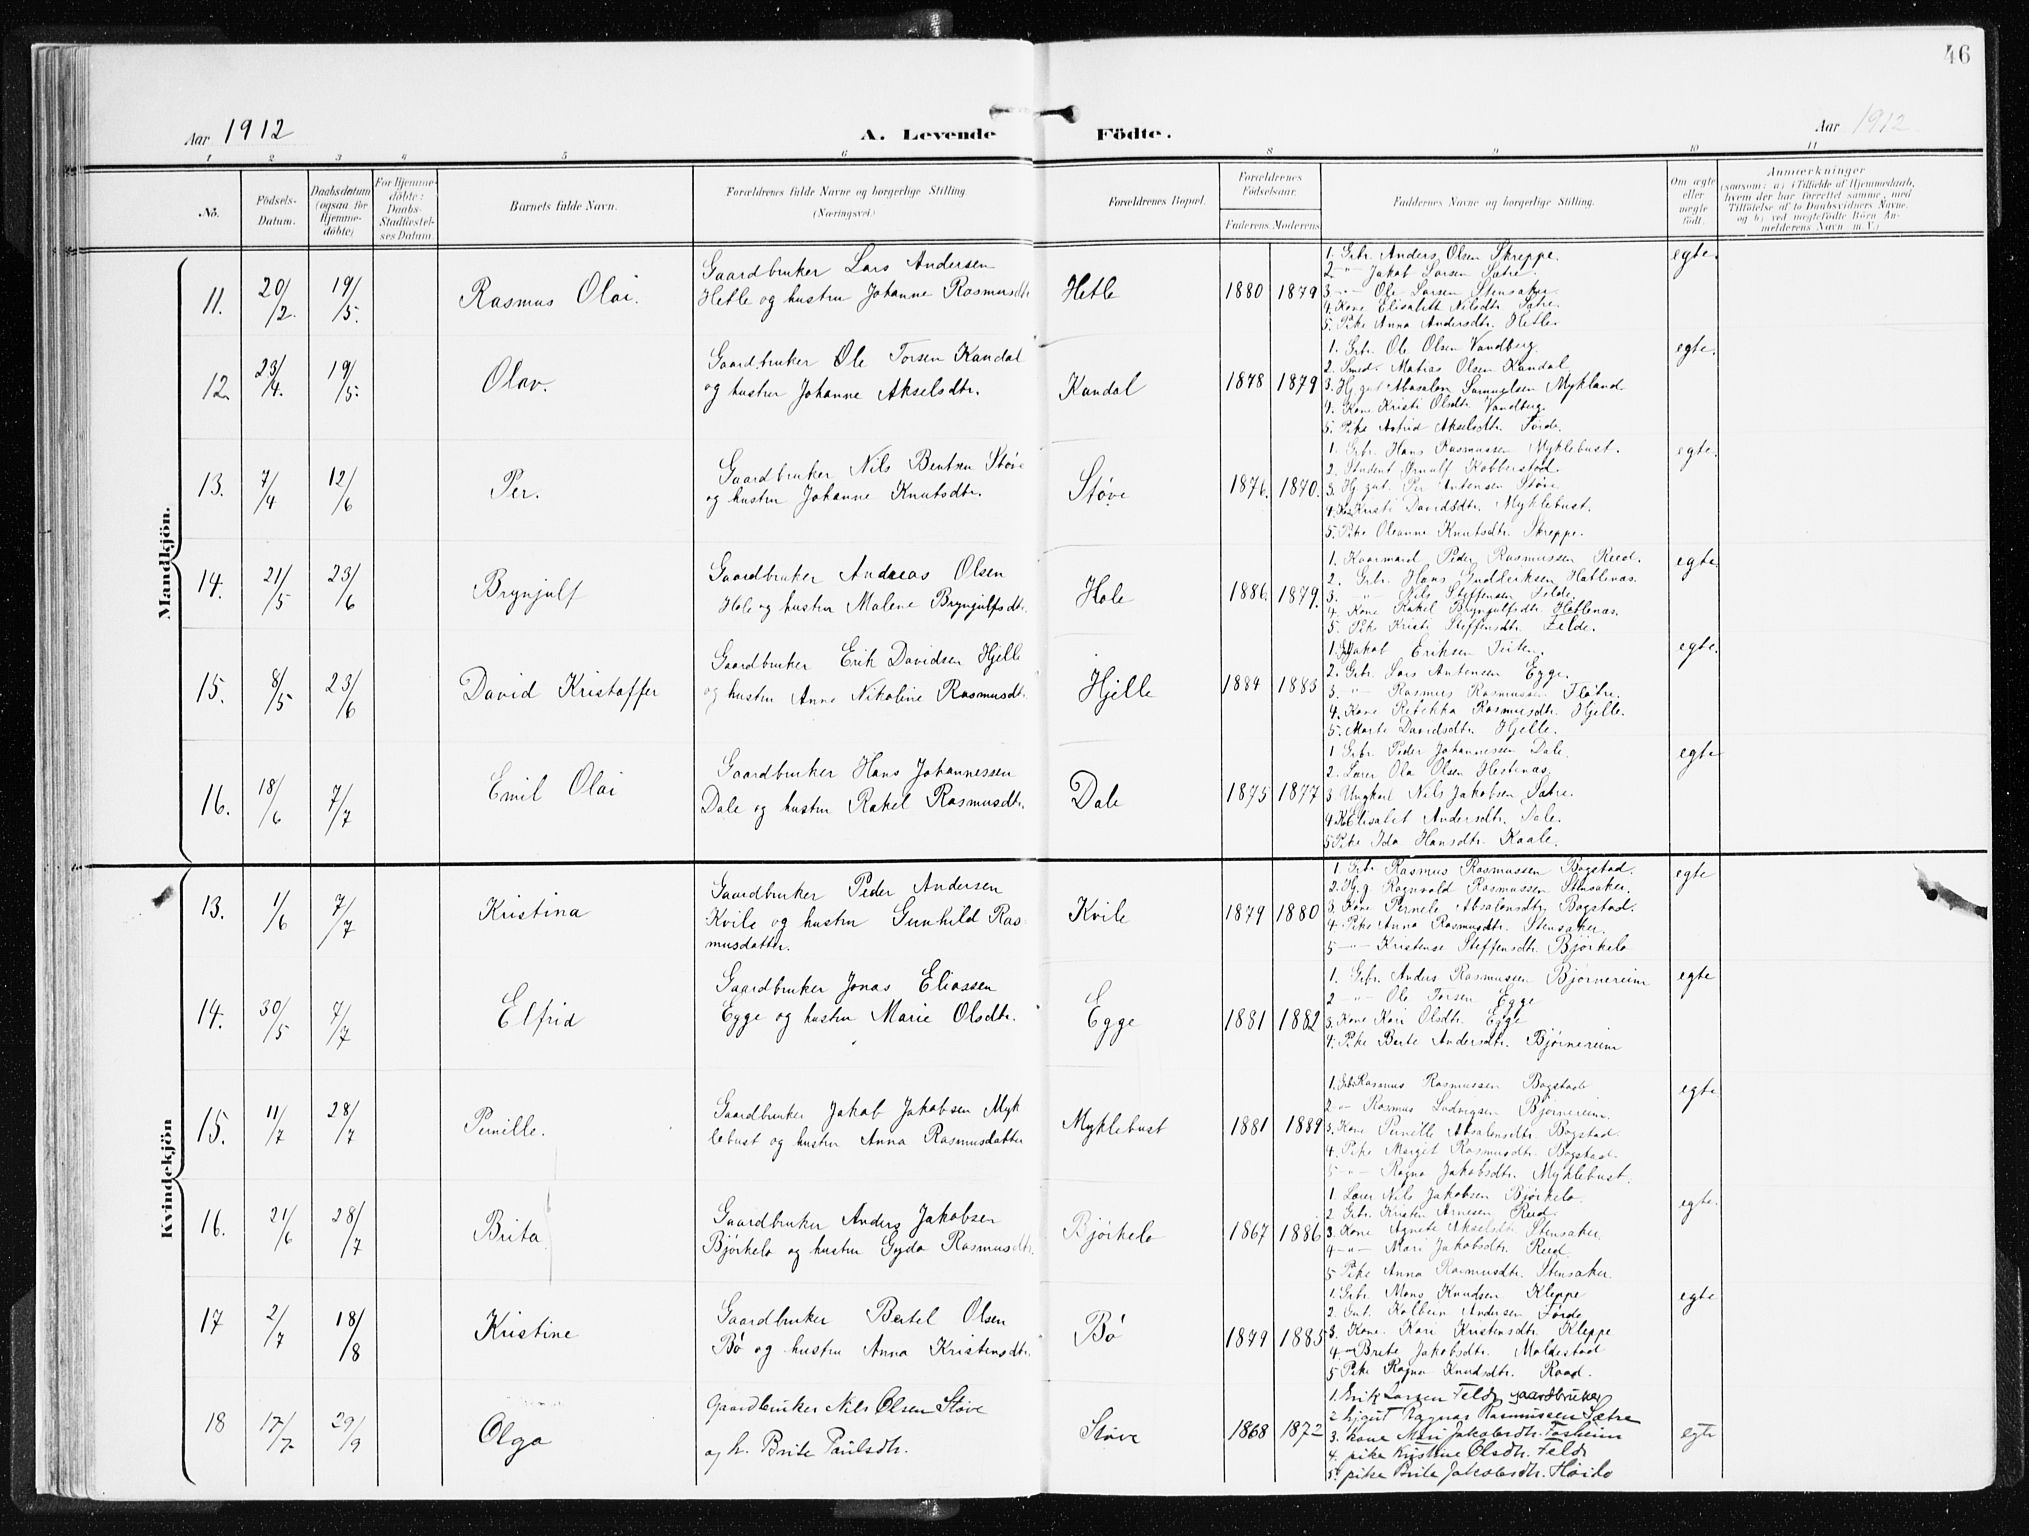 46
Aar 1912
A. Levende Födte.
Aar 1912
1 2 3 4 5 6 8 9 10 11
No.
Födsels-Datum.
Daabsdatum (ogsaa for Hjemme-döbte)
For Hjemme-döbte: Daabs-Stadfæstel-ses Datum.
Barnets fulde Navn.
Forældrenes fulde Navne og borgerlige Stilling (Næringsvei.)
Forældrenes Bopæl.
Forældrenes Födselsaar.
Faderens. Moderens.
Faddernes Navne og borgerlige Stilling.
Om ægte eller uægte födt.
Anmærkninger
(saasom: a) i Tilfælde af Hjemmedaab, hvem der har forrettet samme, med Tilföielse af to Daabsvidners Navne, og b) ved uegtefödte Börn An-melderens Navn m. V.)
Mandkjön.
11. 20/2. 19/5. Rasmus Olai.
Gaardbruker Lars Andersen
Hetle og hustru Johanne Rasmusdtr
Hetle 1880 1879
1. Grb. Anders Olsen Skreppe.
2. -"- Jakob Larsen Sætre.
3. -"- Ole Larsen Stensaker
4. Kone Elisabeth Nilsdtr Sætre.
5. Pike Anna Andersdtr. Hetle.
egte.
12. 23/4. 19/5. Olav.
Gaardbruker Ole Torsen Kandal
og hustru Johanne Akselsdtr.
Kandal 1878 1879
1. Grb. Ole Olsen Vandberg.
2. Smed. Matias Olsen Kandal
3. Hj.gut Absalon Samuelsen Mykland
4. Kone Kristi Olsdtr. Vandberg.
5. Pike Astrid Akselsdtr. Førde.
egte.
13. 7/4 12/6 Per.
Gaardbruker Nils Bentsen Støve
og hustru Johanne Knutsdtr.
Støve 1876. 1870.
1. Grb. Hans Rasmussen Myklebust.
2. Student Ørnulf Kobberstad.
3. Hj.gut. Per Antensen Støve
4. Kone Kristi Davidsdtr. Myklebust.
5. Pike Oleanne Knutsdtr. Skreppe.
egte.
14. 21/5 23/6 Brynjulf
Gaardbruker Andreas Olsen
Hole og hustru Malene Brynjulfsdtr.
Hole 1886. 1879.
1. Kaarmand Peder Rasmussen Reed.
2. Grb. Hans Hatlenæs.
3. -"- Nils Steffensen Felde.
4. Kone Rakel Brynjulfsdtr. Hetlenæs.
5. Pike Kristi Steffensdtr. Felde.
egte
15. 8/5 23/6 David Kristoffer
Gaardbruker Erik Davidsen Hjelle
og hustru Anne Nikoline Rasmusdtr.
Hjelle 1884 1883
1. Jakob Eriksen
2. Grb. Lars Antensen Egge.
3. -"- Rasmus Rasmussen Fløtre.
4. Kone Rebekka Rasmusdtr. Hjelle.
5. Marte Davidsdtr. Hjelle.
egte.
16. 18/6 7/7 Emil Olai
Gaardbruker Hans Johannessen
Dale og hustru Rakel Rasmusdtr.
Dale 1875 1877
1 Grb. Peder Johannessen Dale
2. Lærer Ola Olsen Hestenæs.
3 Ungkarl Nils Jakobsen Sætre.
4 Elisabet Andersdtr. Dale.
5 Pike Ida Hansdtr. Kaale.
egte
Kvindekjön
13. 1/6 7/7 Kristina
Gaardbruker Peder Andersen
Kvile og hustru Gunhild Ras-
musdatter.
Kvile 1879 1880
1. Grb. Rasmus Rasmussen Bogstad.
2. Hj.g. Ragnvald Rasmussen Stensaker.
3. Kone Pernele Absalonsdtr. Bogstad.
4. Pike Anna Rasmusdtr. Stensaker.
5 -"- Kristense Steffensdtr. Bjørkelo
egte
14. 30/5 7/7 Elfrid
Gaardbruker Jonas Eliassen
Egge og hustru Marie Olsdtr.
Egge 1881 1882
1. Grb. Anders Rasmussen Bjørnereim
2 -"- Ole Torsen Egge
3. Kone Kari Olsdtr. Egge
4. Pike Berte Andersdtr. Bjørnereim
egte
15. 11/7 28/7 Pernille.
Gaardbruker Jakob Jakobsen Myk
lebust og hustru Anna Rasmusdatter
Myklebust 1881 1889
1. Grb. Rasmus Rasmussen Bogstad
2 -"- Rasmus Ludvigsen Bjørnereim.
3. Kone Pernille Absalonsdtr. Bogstad.
4. Pike Marget Rasmusdtr. Bogstad.
5 -"- Ragna Jakobsdtr. Myklebust.
egte
16. 21/6 28/7 Brita
Gaardbruker Anders Jakobsen
Bjørkelo og hustru Gyda Rasmusdtr.
Bjørkelo 1867 1886
1. Lærer Nils Jakobsen Bjørkelo.
2. Grb. Kristen Arnesen Reed.
3. Kone Agnete Akselsdtr. Stensaker.
4 -"- Mari Jakobsdtr. Reed
5 Pike Anna Rasmusdtr. Stensaker.
egte.
17 2/7 18/8 Kristine
Gaardbruker Bertel Olsen
Bø og hustru Anna Kristensdtr.
Bø 1879 1885
1. Grb. Mons Knudsen Kleppe
2. Gut. Kolbein Andersen Førde
3. Kone. Kari Kristensdtr. Kleppe
4. -"- Brite Jakobsdtr. Moldestad
5 Pike Ragna Knudsdtr. Raad.
egte
18 17/7 29/9 Olga
Gaardbruker Nils Olsen Støve
og h. Brite Paulsdtr.
Støve 1868 1872
1. Erik Larsen Felde gaardbruker
2 hjgut Ragnar Rasmussen Sætre
3. kone Mari Jakobsdtr. Fosheim
4. pike Kristine Olsdtr. Felde
5. pike Brite Jakobsdtr. Høilo
egte